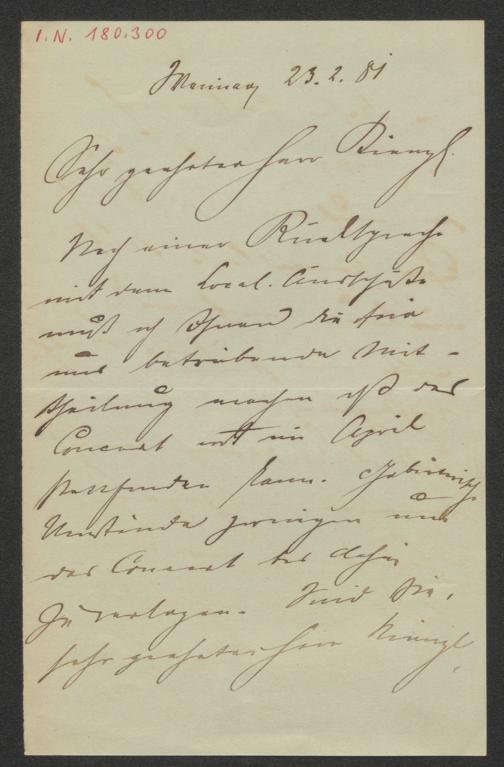 I.N. 180.300
Weimar 23.2.81
Sehr geehrter Herr Kienzl.
Nach einer Rücksprache
mit dem Local-Ausschuße
muß ich Ihnen die für
uns betrübende Mit-
theilung machen daß das
Concert erst im April
stattfinden kann. Gebieterische
Umstände zwingen uns
das Concert bis dahin
zu verlegen. Sind Sie,
sehr geehrter Herr Kienzl,